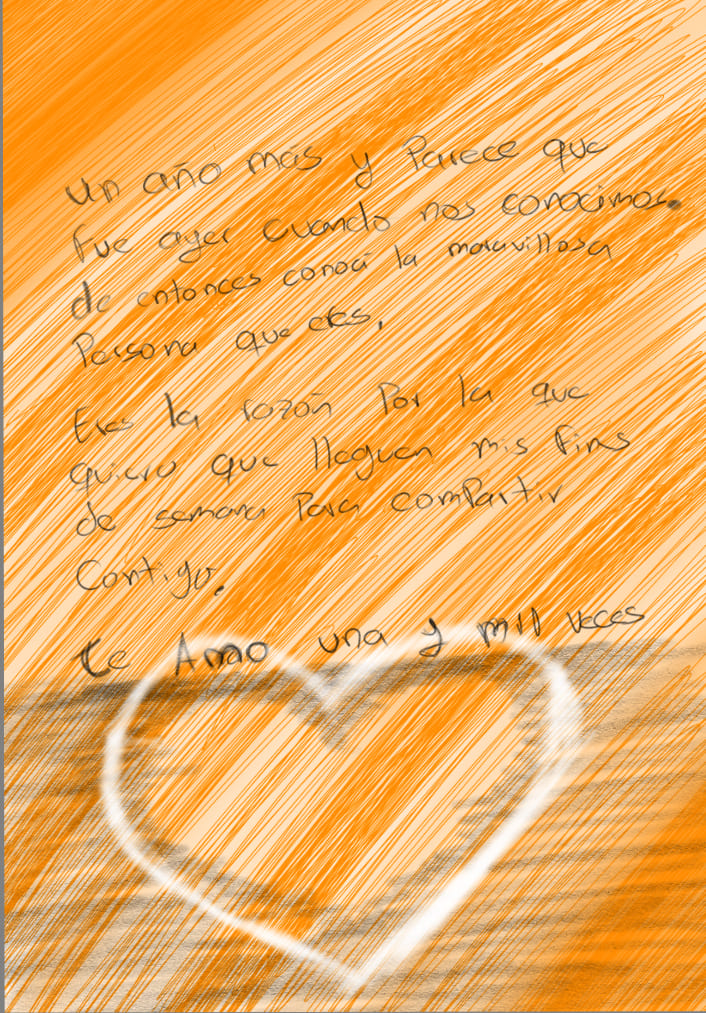 un año más y Parece que
fue ayer cuando nos conocimos.
de entonces conocí la maravillosa
Persona que eres,
Eres la razón Por la que
quiero que lleguen mis fins
de semana Para comPartir
Contigo.
te Amo una y mil veces